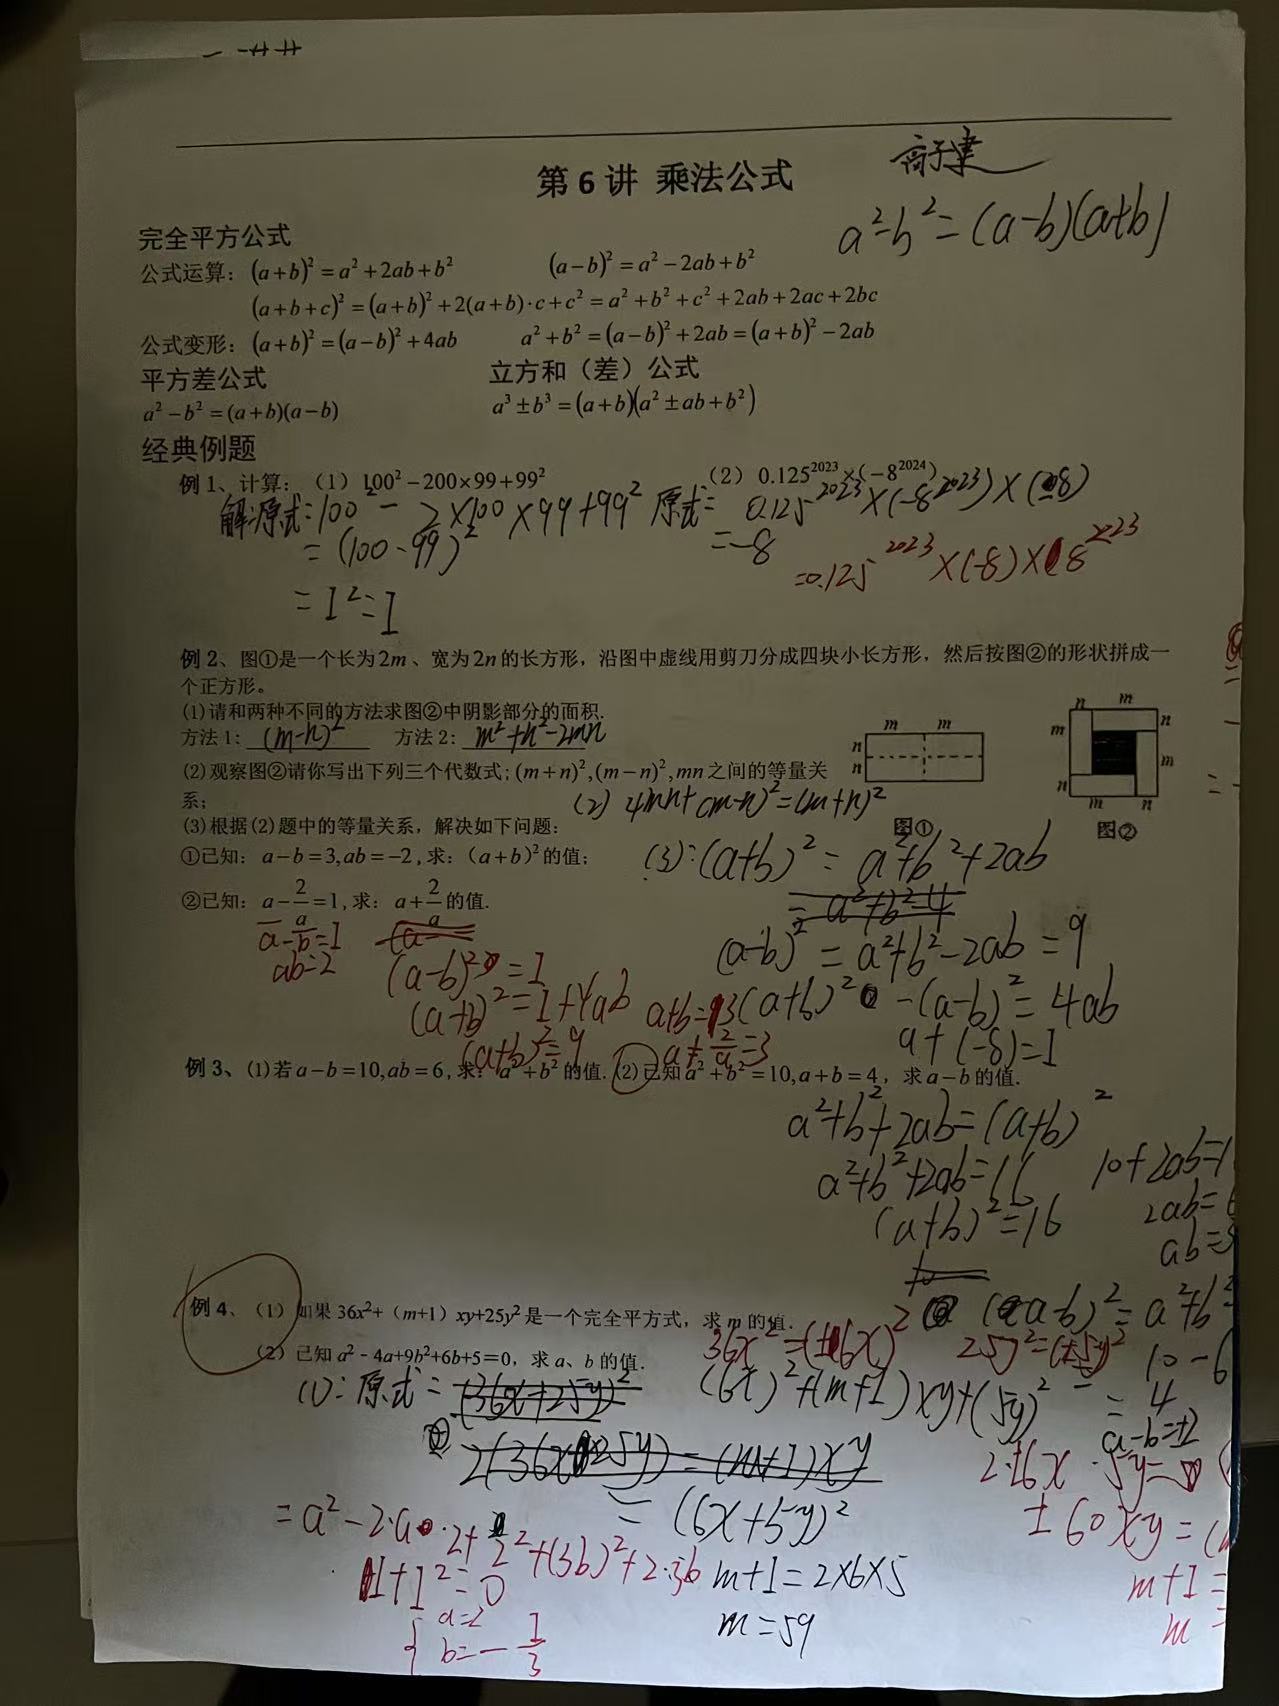 第 6 讲 乘法公式
高子建
a²-b²=(a-b)(a+b)
完全平方公式
公式运算：(a+b)²=a²+2ab+b² (a-b)²=a²-2ab+b²
(a+b+c)²=(a+b)²+2(a+b)·c+c²=a²+b²+c²+2ab+2ac+2bc
公式变形：(a+b)²=(a-b)²+4ab a²+b²=(a-b)²+2ab=(a+b)²-2ab
平方差公式 立方和（差）公式
a²-b²=(a+b)(a-b) a³±b³=(a+b)(a²±ab+b²)
经典例题
例 1、计算：（1）100²-200×99+99² （2）0.125²⁰²³×(-8²⁰²⁴)
解:原式=100²-2×100×99+99² 原式=0.125²⁰²³×(-8²⁰²³)×(-8)
=(100-99)² =-8
=0.125²⁰²³×(-8)×8²⁰²³
=1²=1
例 2、图①是一个长为2m、宽为2n的长方形，沿图中虚线用剪刀分成四块小长方形，然后按图②的形状拼成一
个正方形。
(1)请和两种不同的方法求图②中阴影部分的面积.
方法 1：(m-n)² 方法 2：m²+n²-2mn
(2)观察图②请你写出下列三个代数式；(m+n)²,(m-n)²,mn之间的等量关
系；
(2) 4mn+(m-n)²=(m+n)²
m m
n
n
图①
n m
m n
n m
m n
图②
(3)根据(2)题中的等量关系，解决如下问题：
①已知：a-b=3,ab=-2,求：(a+b)²的值；
(3):(a+b)²=a²+b²+2ab
=a²+b²-4
②已知：a-2/a=1,求：a+2/a的值.
a-b=1
ab=2
(a-b)²=1
(a+b)²=1+4ab
(a+b)²=9
a+b=3
a+2/a=3
(a-b)²=a²+b²-2ab=9
(a+b)²-(a-b)²=4ab
a+(-8)=1
例 3、(1)若a-b=10,ab=6,求：a²+b²的值. (2)已知a²+b²=10,a+b=4，求a-b的值.
a²+b²+2ab=(a+b)²
a²+b²+2ab=16
(a+b)²=16
10+2ab=1
2ab=6
ab=3
(a-b)²=a²+b²-
10-6
=4
a-b=±2
例 4、（1）如果 36x²+（m+1）xy+25y²是一个完全平方式，求 m 的值.
（2）已知 a²-4a+9b²+6b+5=0，求 a、b 的值.
36x²=(±6x)² 25y²=(±5y)²
(1):原式=(36x+25y)² (6x)²+(m+1)xy+(5y)²
=(6x+5y)²
m+1=2×6×5
m=59
2·±6x·5y=
±60xy=(
m+1=
m=
=a²-2·a·2+2²+(3b)²+2·3b
·1+1²=0
a=2
b=-1/3